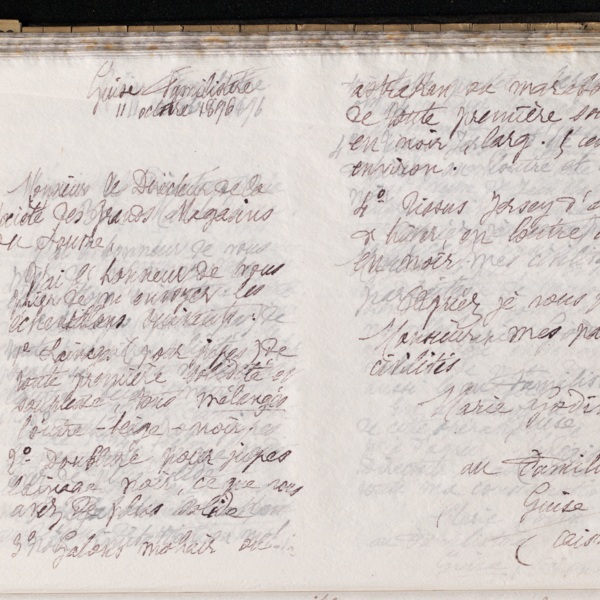 Guise Familistère
11 octobre 1896
Monsieur le Directeur de la
Société des Grands Magasins
du Louvre
J'ai l'honneur de vous
de m'envoyer les
échantillons suivants.
1º Lainage (pour jupes) de
toute première solidité et
souplesse tons mélangés
loutre - beige - noir
2º Doublure pour jupes
lainage noir, ce que vous
avez de plus solide
3º Galons mohair
astrakan ou marabout
de toute première
en noir larg. 5
environ.
4º Tissus Jersey
en loutre
en noir.
Agréez je vous
Monsieur mes
civilités
Marie
au
Guise